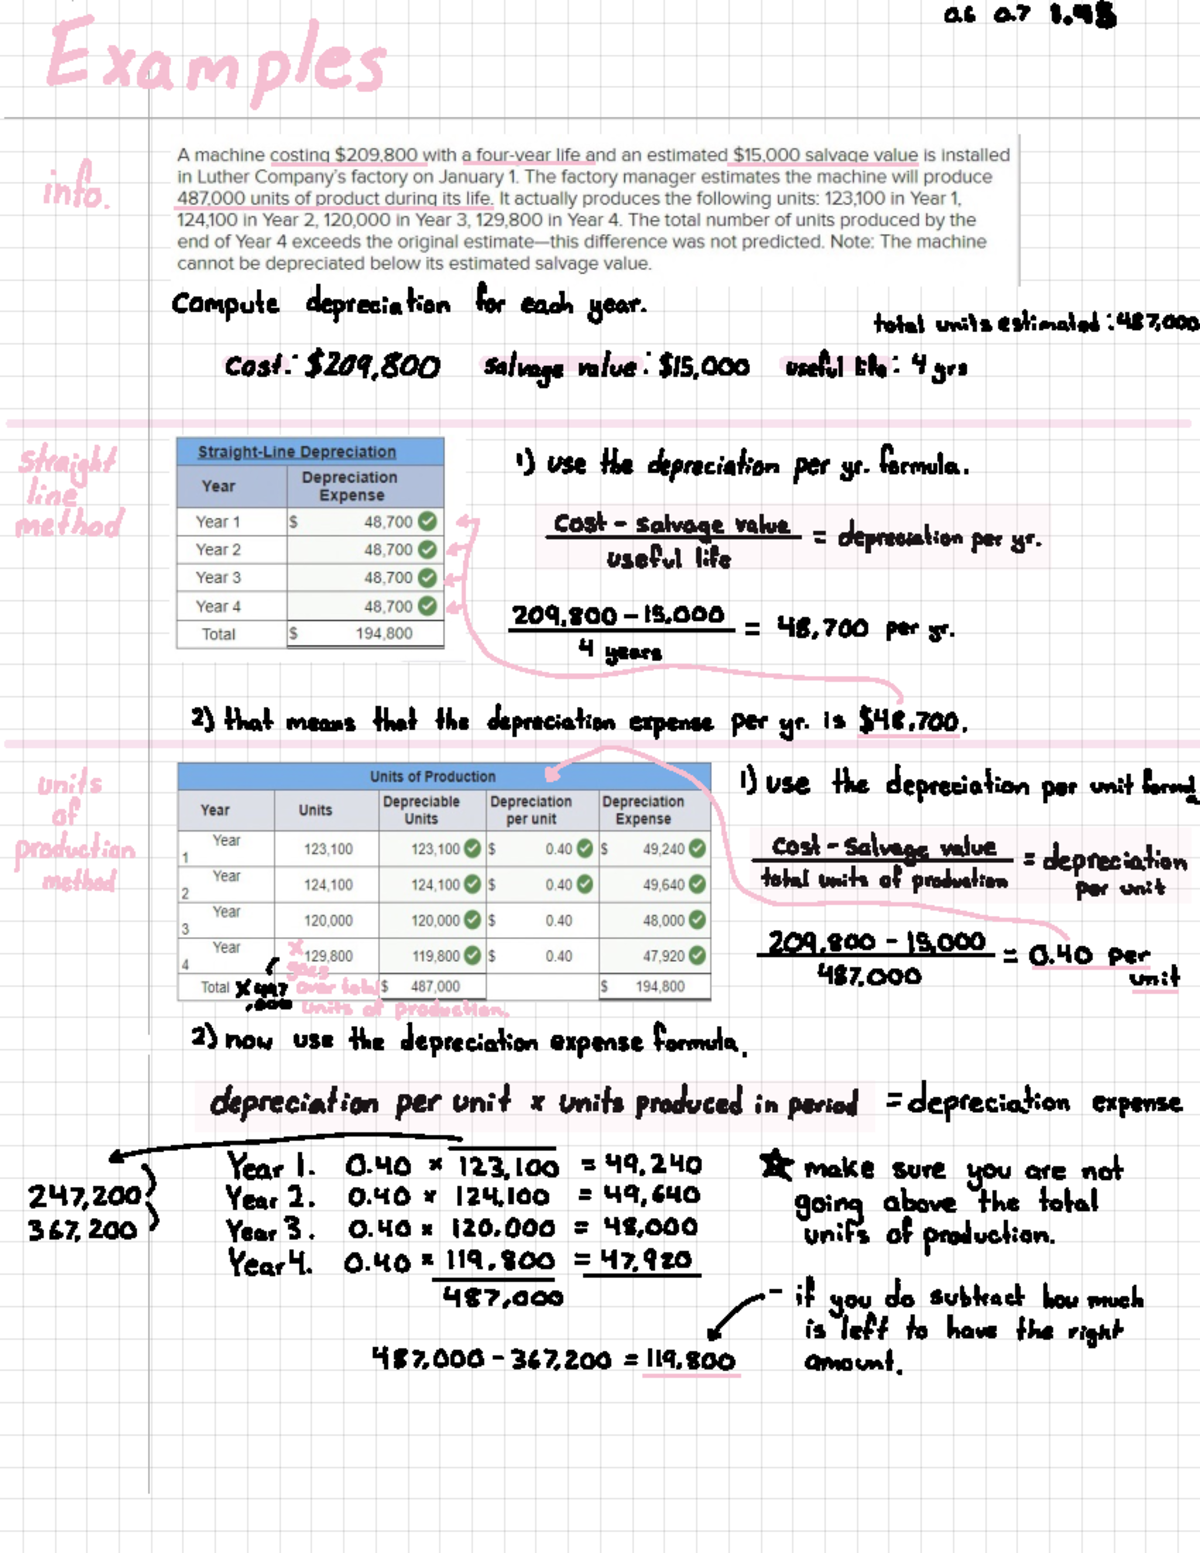 0.6 0.7 1.45
Examples
info.
A machine costing $209,800 with a four-year life and an estimated $15,000 salvage value is installed
in Luther Company's factory on January 1. The factory manager estimates the machine will produce
487,000 units of product during its life. It actually produces the following units: 123,100 in Year 1,
124,100 in Year 2, 120,000 in Year 3, 129,800 in Year 4. The total number of units produced by the
end of Year 4 exceeds the original estimate—this difference was not predicted. Note: The machine
cannot be depreciated below its estimated salvage value.
Compute depreciation for each year.
total units estimated: 487,000
Cost: $209,800 salvage value: $15,000 useful life: 4 yrs
straight
line
method
Straight-Line Depreciation
Year Depreciation Expense
Year 1 $ 48,700
Year 2 48,700
Year 3 48,700
Year 4 48,700
Total $ 194,800
1) use the depreciation per yr. formula.
cost - salvage value
= depreciation per yr.
useful life
209,800 - 15,000
= 48,700 per yr.
4 years
2) that means that the depreciation expense per yr. is $48,700.
units
of
production
method
Units of Production
Year Units Depreciable Units Depreciation per unit Depreciation Expense
Year 1 123,100 123,100 $ 0.40 $ 49,240
Year 2 124,100 124,100 $ 0.40 49,640
Year 3 120,000 120,000 $ 0.40 48,000
Year 4 129,800 119,800 $ 0.40 47,920
Total $ 487,000 $ 194,800
x goes
over total
units of production.
1) use the depreciation per unit formula
cost - salvage value
= depreciation
total units of production
per unit
209,800 - 15,000
= 0.40 per
487,000
unit
2) now use the depreciation expense formula.
depreciation per unit x units produced in period = depreciation expense
Year 1. 0.40 x 123,100 = 49,240
Year 2. 0.40 x 124,100 = 49,640
Year 3. 0.40 x 120,000 = 48,000
Year 4. 0.40 x 119,800 = 47,920
487,000
247,200
367,200
487,000 - 367,200 = 119,800
☆ make sure you are not
going above the total
units of production.
- if you do subtract how much
is left to have the right
amount.